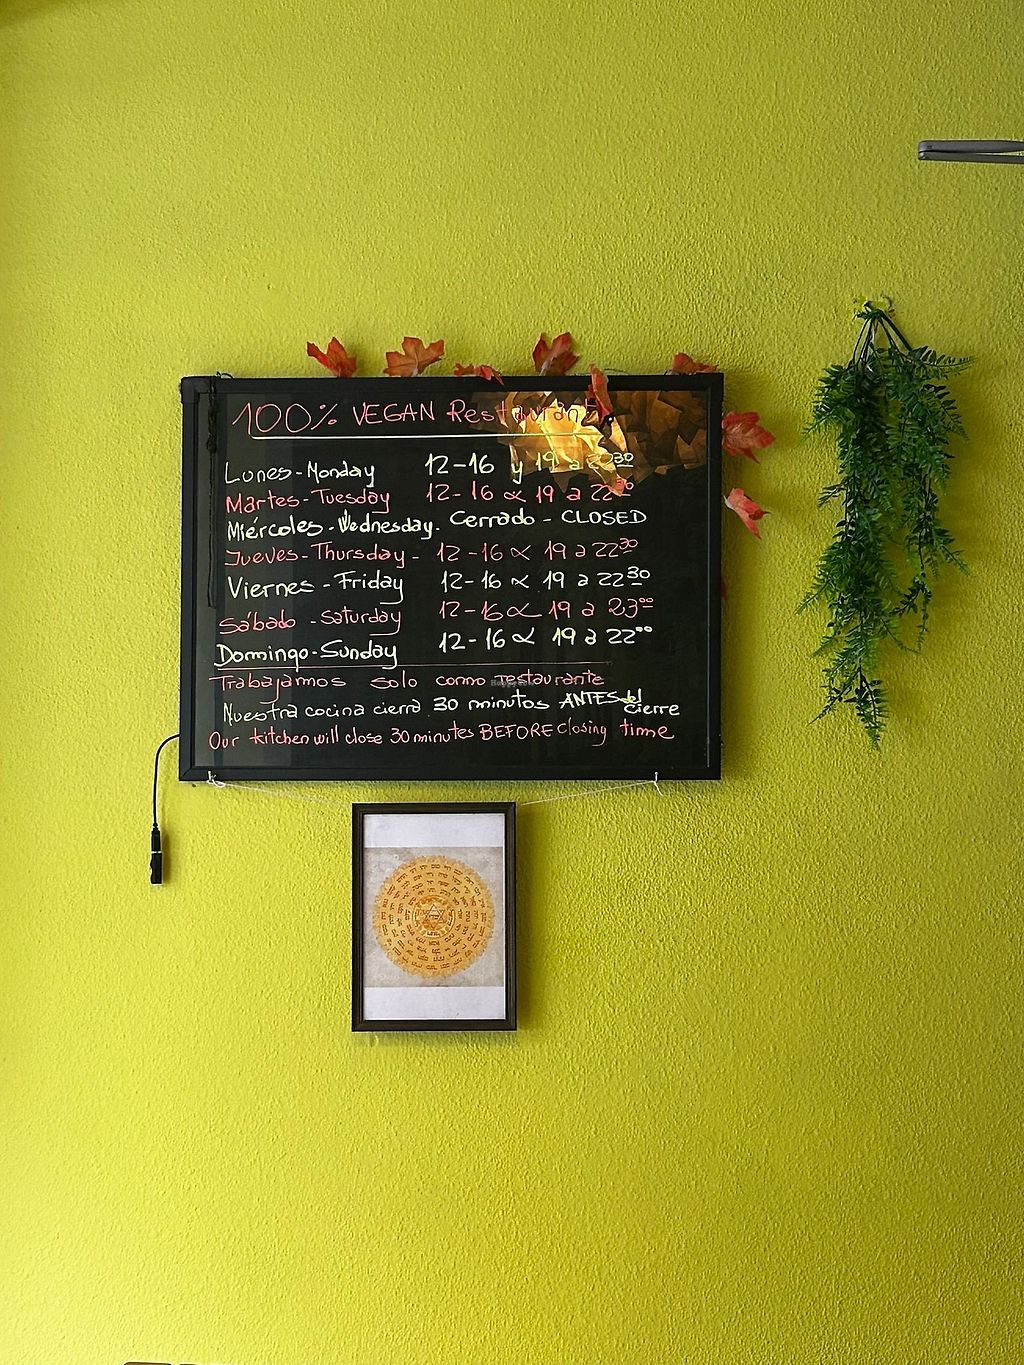 100% VEGAN Restaurant
Lunes - Monday 12-16 y 19 a 22³⁰
Martes - Tuesday 12-16 & 19 a 22³⁰
Miércoles - Wednesday. Cerrado - CLOSED
Jueves - Thursday - 12-16 & 19 a 22³⁰
Viernes - Friday 12-16 & 19 a 22³⁰
Sábado - Saturday 12-16 & 19 a 23⁰⁰
Domingo - Sunday 12-16 & 19 a 22⁰⁰
Trabajamos solo como restaurante
Nuestra cocina cierra 30 minutos ANTES del cierre
Our kitchen will close 30 minutes BEFORE closing time